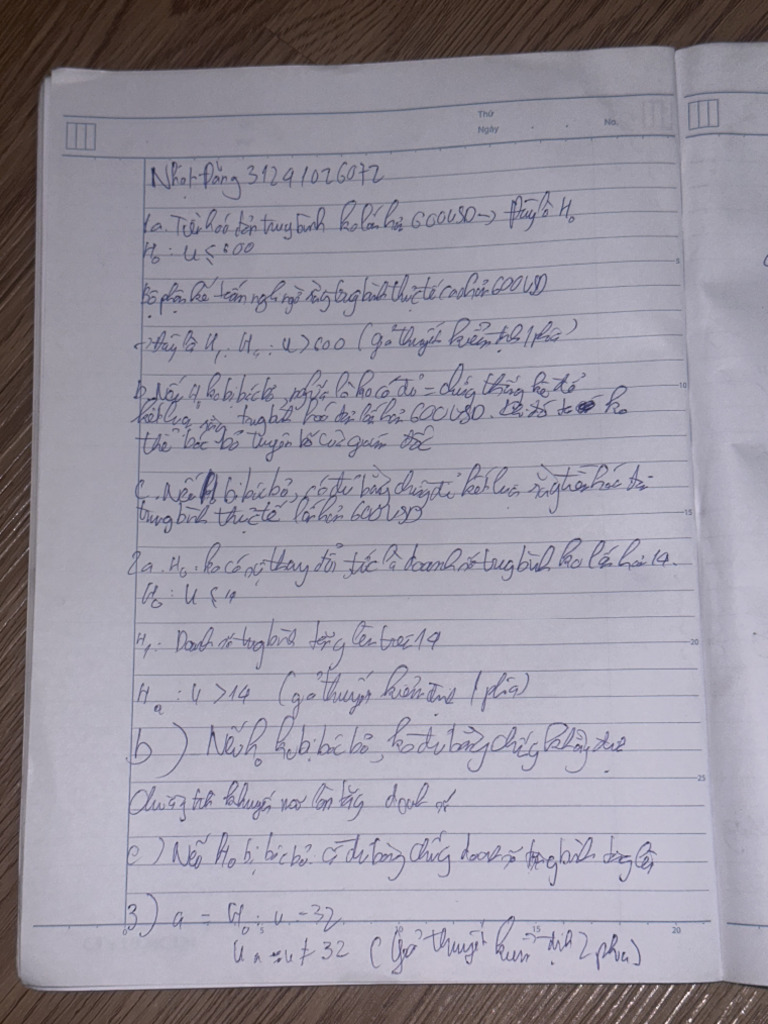 Thứ
Ngày No.
Nhật Đăng 31241026072
1a. Tiền hoá đơn trung bình ko lớn hơn 600USD → Đây là H₀
H₀ : u ≤ 600
Bộ phận kế toán nghi ngờ rằng trung bình thực tế cao hơn 600USD
→ đây là H₁. Hₐ : u > 600 (giả thuyết kiểm định 1 phía)
b. Nếu H₀ ko bị bác bỏ, nghĩa là ko có đủ = chứng thống kê để
5
10
kết luận rằng trung bình hoá đơn lớn hơn 600USD. ko
thể bác bỏ tuyên bố của giám đốc
c. Nếu H₀ bị bác bỏ, có đủ bằng chứng để kết luận rằng tiền hoá đơn
15
trung bình thực tế lớn hơn 600USD
2a. H₀. ko có sự thay đổi tức là doanh số trung bình ko lớn hơn 14.
H₀ : u ≤ 14
H₁: Doanh số trung bình tăng lên trên 14
20
Hₐ : u > 14 (giả thuyết kiểm định 1 phía)
b) Nếu H₀ ko bị bác bỏ, ko đủ bằng chứng
25
chương trình khuyến mãi làm tăng doanh số
c) Nếu H₀ bị bác bỏ. có đủ bằng chứng doanh số trung bình tăng lên
3) a = H₀ : u = 32
5 10 15 20
Hₐ = u ≠ 32 (Giả thuyết kiểm định 2 phía)